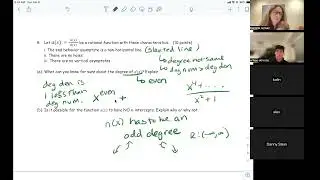 4. Let u(x) = n(x)/d(x) be a rational function with these characteristics. (10 points)
i. The end behavior asymptote is a non-horizontal line (slanted line)
ii. There are no holes
iii. There are no vertical asymptotes
degree not same
deg num > deg den
(a) What can you know for sure about the degree of d(x)? Explain
even
deg den is
1 less than
deg num.
x^even . . +
x^3 + . . . .
x^2 + 1
(b) Is it possible for the function u(x) to have NO x-intercepts. Explain why or why not
n(x) has to be an
odd degree
R: (-∞,∞)
kalin
alex
Danny Stein